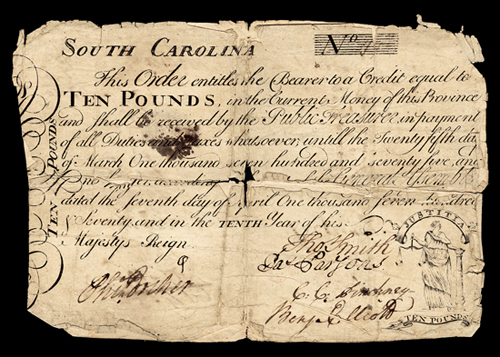 SOUTH CAROLINA
No
This Order entitles the Bearer to a Credit equal to
TEN POUNDS, in the Current Money of this Province
and shall be received by the Public Treasurer, in payment
of all Duties and Taxes whatsoever until the Twenty fifth day
of March One thousand seven hundred and seventy five, and
no longer
dated the seventh day of April One thousand seven
Seventy, and in the TENTH Year of his
Majestys Reign
Thos Smith
Jas Parsons
C. C. Pinckney
Benj Elliott
JUSTITIA
TEN POUNDS
TEN POUNDS